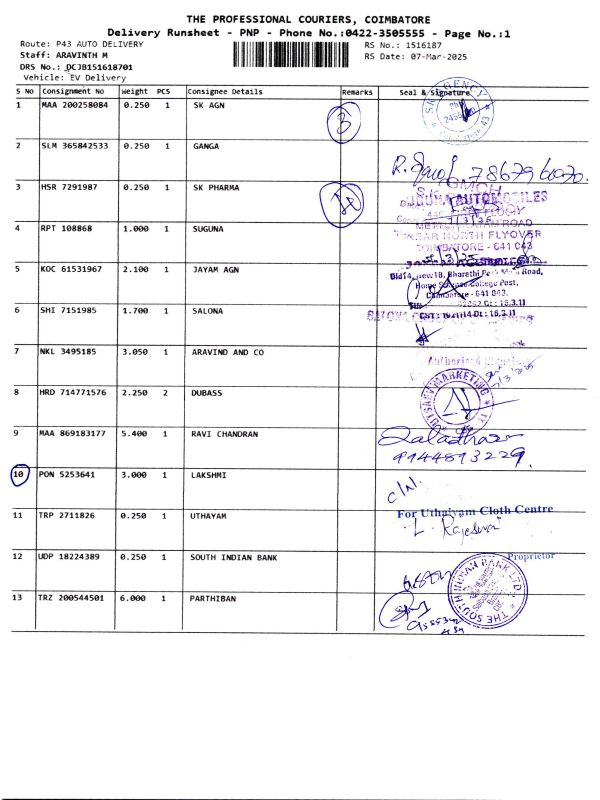 THE PROFESSIONAL COURIERS, COIMBATORE
Delivery Runsheet - PNP - Phone No.:0422-3505555 - Page No.:1
Route: P43 AUTO DELIVERY
RS No.: 1516187
Staff: ARAVINTH M
RS Date: 07-Mar-2025
DRS No.: DCJB151618701
Vehicle: EV Delivery
S No Consignment No Weight PCS Consignee Details Remarks Seal & Signature
1 MAA 200258084 0.250 1 SK AGN
3
2 SLM 365842533 0.250 1 GANGA
3 HSR 7291987 0.250 1 SK PHARMA
4 RPT 108868 1.000 1 SUGUNA
NEAR NORTH FLYOVER
COIMBATORE - 641 043
5 KOC 61531967 2.100 1 JAYAM AGN
Coimbatore - 641 043.
6 SHI 7151985 1.700 1 SALONA
7 NKL 3495185 3.050 1 ARAVIND AND CO
8 HRD 714771576 2.250 2 DUBASS
MARKETING
9 MAA 869183177 5.400 1 RAVI CHANDRAN
9944893229.
10 PON 5253641 3.000 1 LAKSHMI
C/N.
11 TRP 2711826 0.250 1 UTHAYAM
For Uthaiyam Cloth Centre
L. Rajeswari
Proprietor
12 UDP 18224389 0.250 1 SOUTH INDIAN BANK
THE SOUTH INDIAN BANK LTD.
13 TRZ 200544501 6.000 1 PARTHIBAN